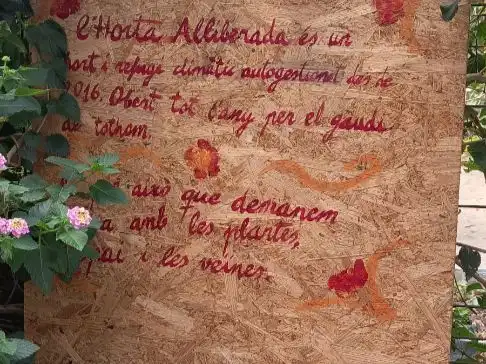 l'Horta Alliberada és un
hort i refugi climàtic autogestionat des de
2016. Obert tot l'any per el gaudi
de tothom.
això que demanem
amb les plantes,
i les veïnes.